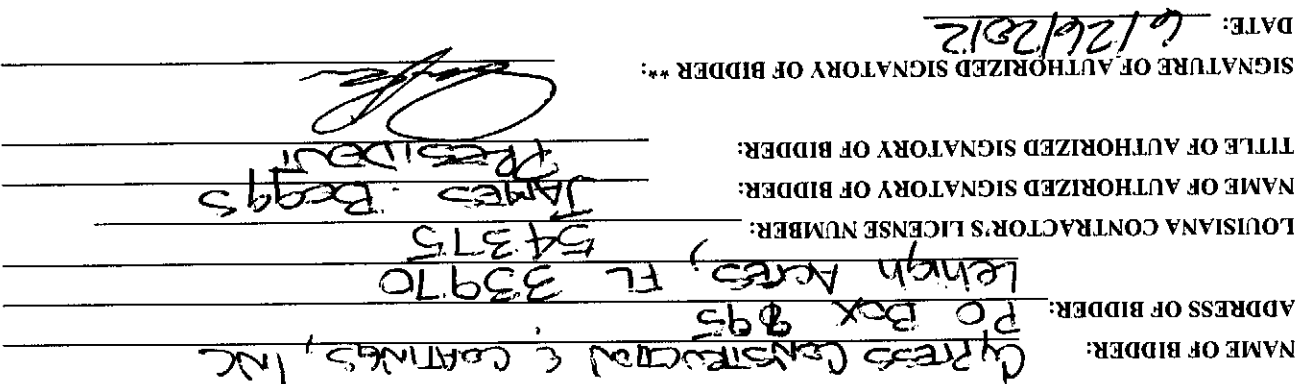 NAME OF BIDDER: Cypress Construction & Coatings, Inc
ADDRESS OF BIDDER: PO Box 895
Lehigh Acres, FL 33970
LOUISIANA CONTRACTOR'S LICENSE NUMBER: 54375
NAME OF AUTHORIZED SIGNATORY OF BIDDER: James Beggs
TITLE OF AUTHORIZED SIGNATORY OF BIDDER: President
SIGNATURE OF AUTHORIZED SIGNATORY OF BIDDER **:
DATE: 6/26/2012